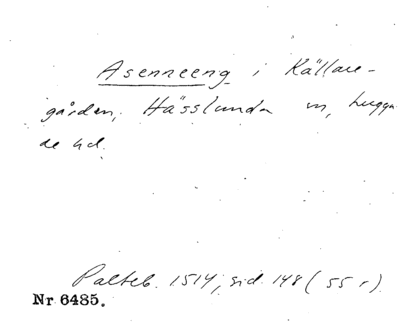 Asenneeng i Källare-
gården, Hässlunda sn, Luggu-
de hd.
Palteb. 1514, sid. 148 (55 r).
Nr 6485.